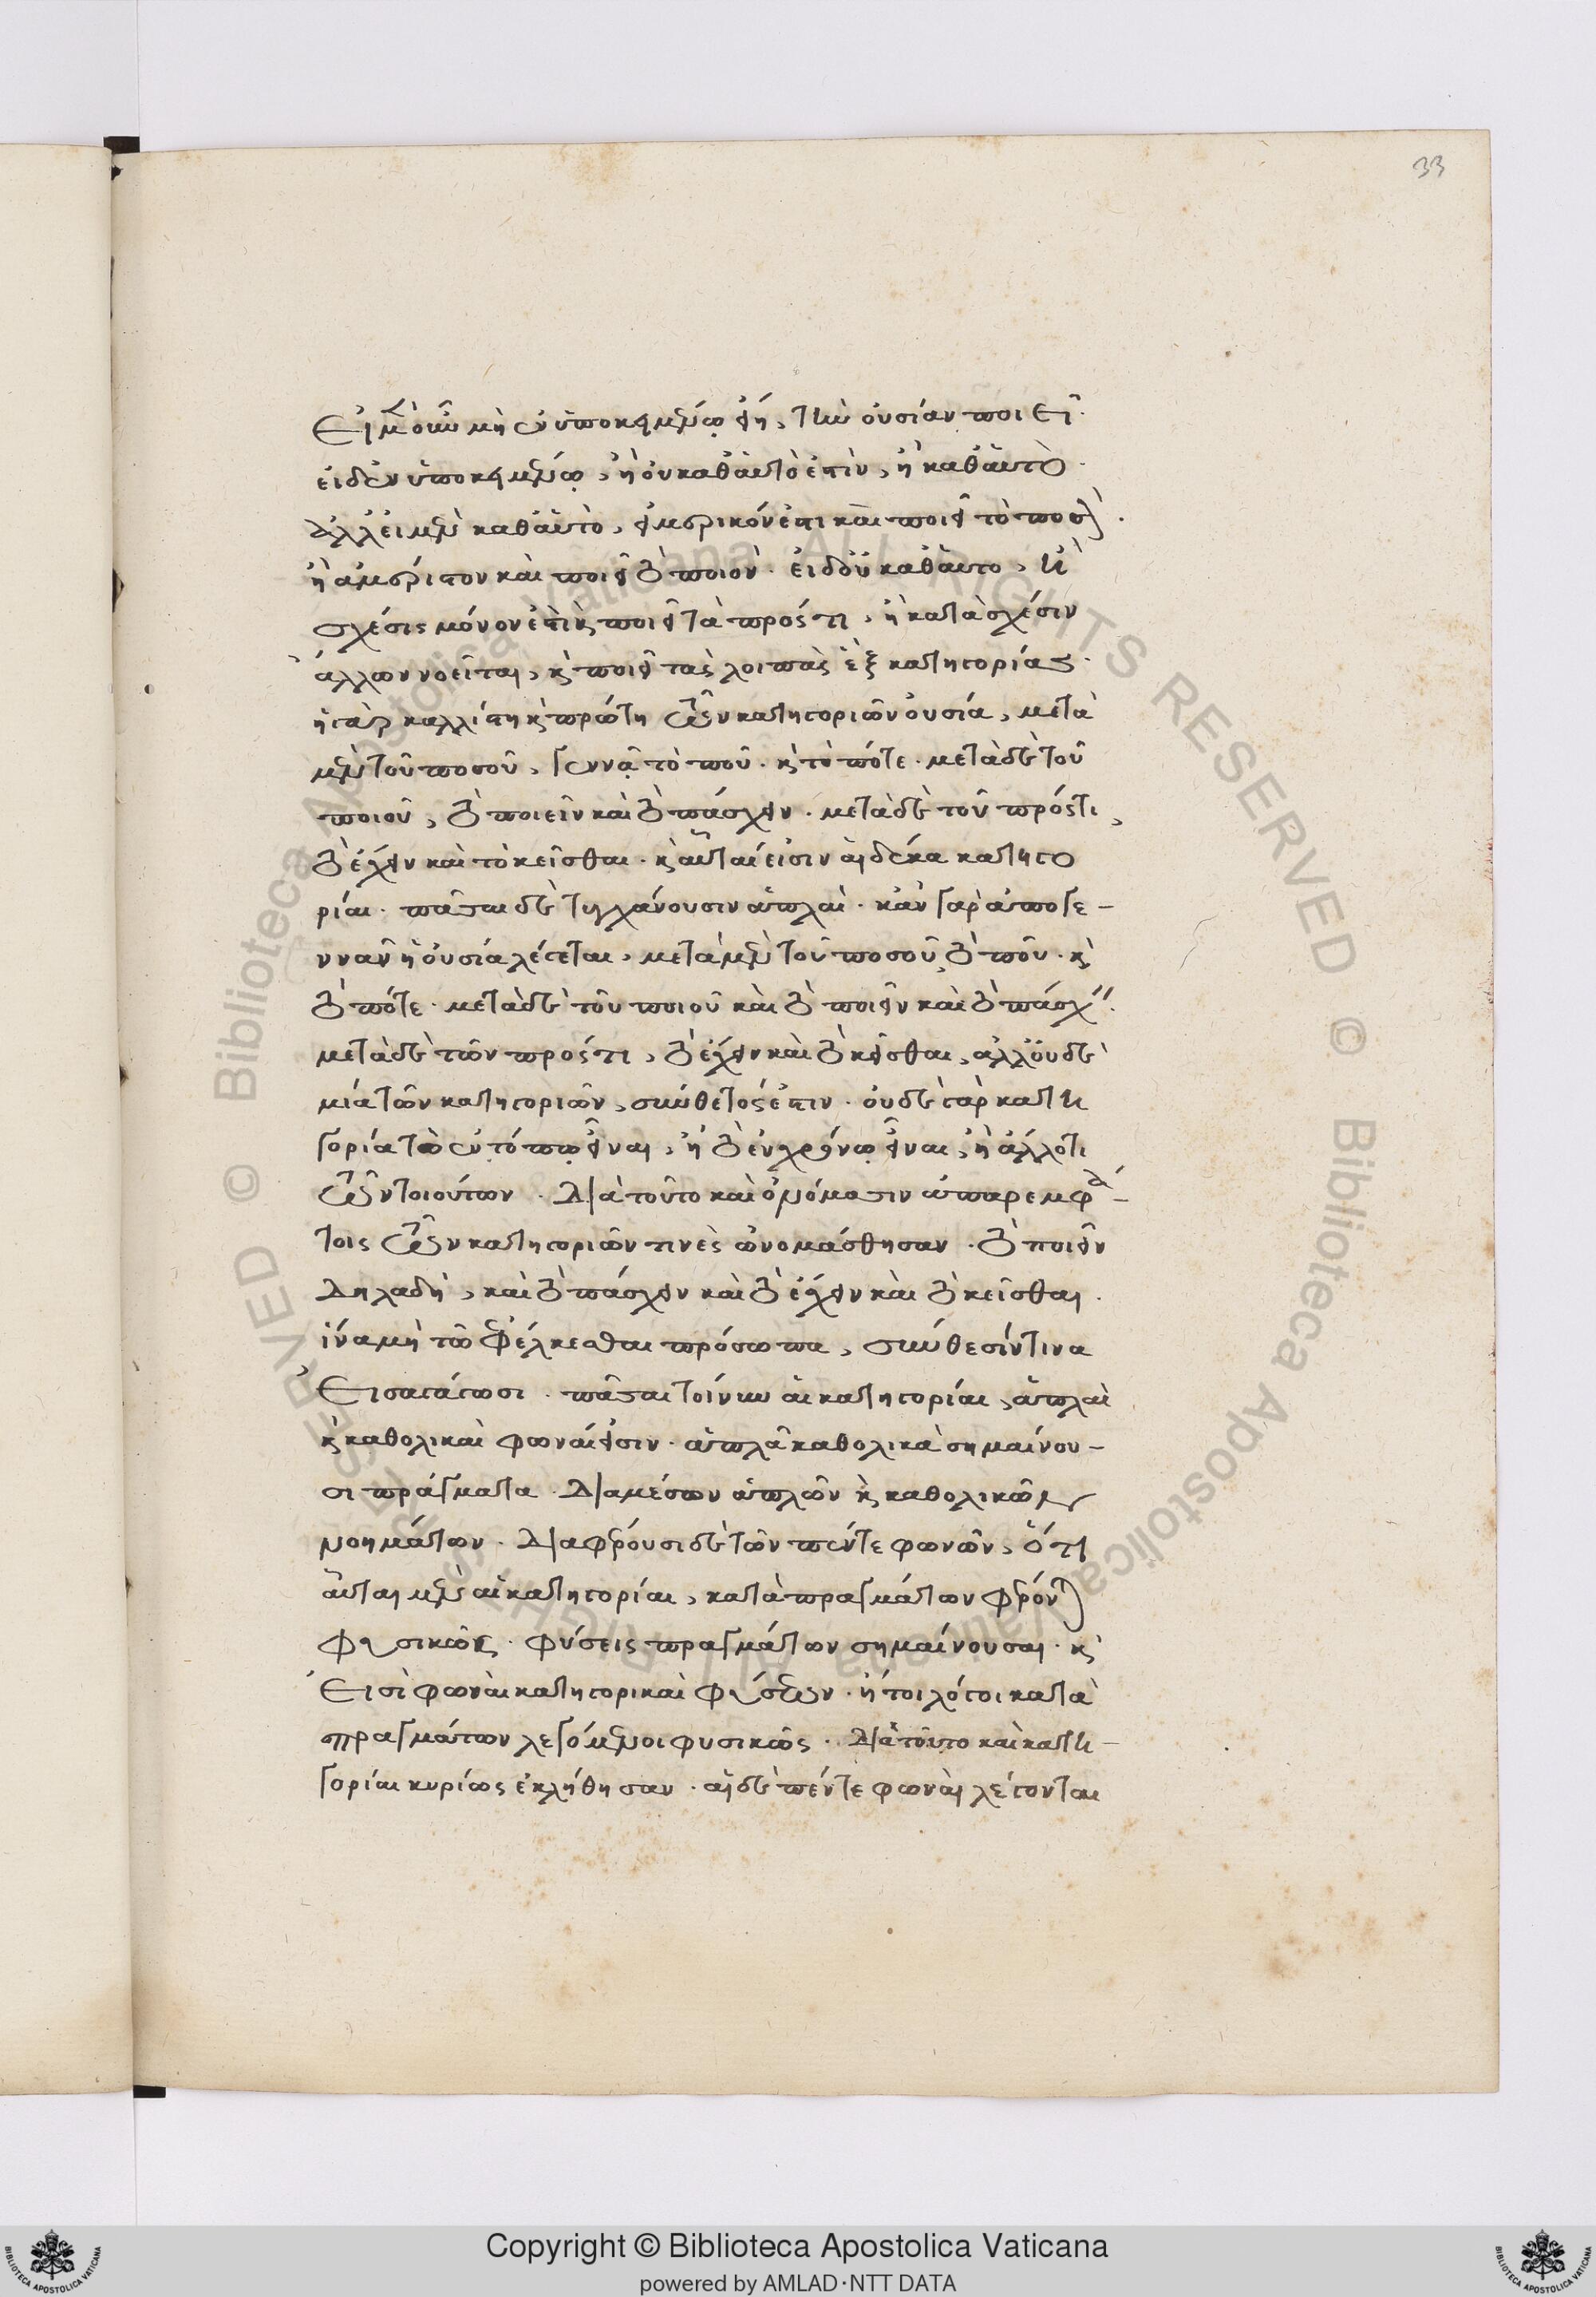 33
Εἰ μὲν οὖν μὴ ἐν ὑποκειμένῳ εἴη, τὴν οὐσίαν ποιεῖ·
εἰ δ' ἐν ὑποκειμένῳ, ἢ οὐ καθ' αὑτό ἐστιν, ἢ καθ' αὑτὸ·
ἀλλ' εἰ μὲν καθ' αὑτὸ, ἢ μεριστικόν ἐστι καὶ ποιεῖ τὸ ποσὸν.
ἢ ἀμέριστον καὶ ποιεῖ τὸ ποιὸν. εἰ δ' οὐ καθ' αὑτο, ἢ
σχέσις μόνον ἐστὶ καὶ ποιεῖ τὰ πρός τι, ἢ κατὰ σχέσιν
ἄλλων νοεῖται, καὶ ποιεῖ τὰς λοιπὰς ἓξ κατηγορίας·
ἡ γὰρ καλλίστη καὶ πρώτη τῶν κατηγοριῶν οὐσία, μετὰ
μὲν τοῦ ποσοῦ, γεννᾷ τὸ ποῦ. καὶ τὸ πότε. μετὰ δὲ τοῦ
ποιοῦ, τὸ ποιεῖν καὶ τὸ πάσχειν. μετὰ δὲ τοῦ πρός τι,
τὸ ἔχειν καὶ τὸ κεῖσθαι. καὶ αὗταί εἰσιν αἱ δέκα κατηγο
ρίαι. πᾶσαι δὲ τυγχάνουσιν ἁπλαὶ. κἂν γὰρ ἀπογε-
ννᾶν ἡ οὐσία λέγεται, μετὰ μὲν τοῦ ποσοῦ, τὸ ποῦ. καὶ
τὸ πότε. μετὰ δὲ τοῦ ποιοῦ καὶ τὸ ποιεῖν καὶ τὸ πάσχειν.
μετὰ δὲ τῶν πρός τι, τὸ ἔχειν καὶ τὸ κεῖσθαι, ἀλλ' οὐδὲ
μία τῶν κατηγοριῶν, σύνθετός ἐστιν. οὐδὲ γὰρ κατη
γορία τὸ ἐν τόπῳ εἶναι, ἢ τὸ ἐν χρόνῳ εἶναι, ἢ ἄλλό τι
τῶν τοιούτων. Διὰ τοῦτο καὶ ὀνόμασιν ἀπαρεμφά-
τοις τῶν κατηγοριῶν τινὲς ὠνομάσθησαν. τὸ ποιεῖν
δηλαδὴ, καὶ τὸ πάσχειν καὶ τὸ ἔχειν καὶ τὸ κεῖσθαι.
ἵνα μὴ τῷ ἐφέλκεσθαι πρόσωπα, σύνθεσίν τινα
Εἰσαγάγωσι. πᾶσαι τοίνυν αἱ κατηγορίαι, ἁπλαὶ
καὶ καθολικαὶ φωναί εἰσιν. ἁπλᾶ καθολικὰ σημαίνου-
σι πράγματα. Διὰ μέσων ἁπλῶν καὶ καθολικῶν
νοημάτων. Διαφέρουσι δὲ τῶν πέντε φωνῶν, ὅτι
αὗται μὲν αἱ κατηγορίαι, κατὰ πραγμάτων φέρονται
φυσικῶς. φύσεις πραγμάτων σημαίνουσαι. καὶ
Εἰσὶ φωναὶ κατηγορικαὶ φύσεων. ἤτοι λόγοι κατὰ
πραγμάτων λεγόμενοι φυσικῶς. Διὰ τοῦτο καὶ κατη-
γορίαι κυρίως ἐκλήθησαν. αἱ δὲ πέντε φωναὶ λέγονται
Copyright © Biblioteca Apostolica Vaticana
powered by AMLAD·NTT DATA